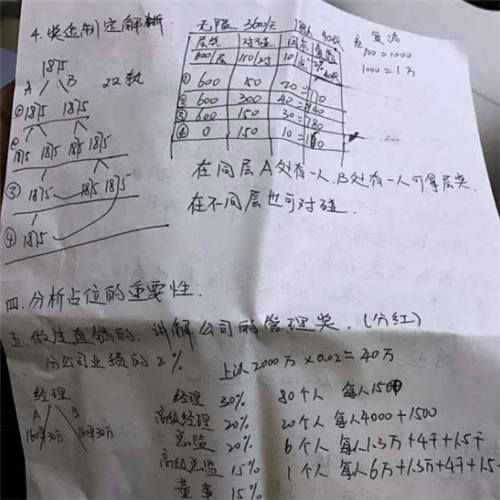 4. 奖金制定解析
无限 3600/天
1815
A B 双轨
① 1815 1815
② 1815 1815 1815 1815
③ 1815 1815 1815
④ 1815
层奖 对碰
600/层 150/对
① 600 150 20
② 600 300 40
③ 600 150 30
④ 0 150 10
100 = 1000
1000 = 1万
在同层A处有一人.B处有一人可拿层奖.
在不同层也可对碰
四.分析占位的重要性.
五.做过直销的.讲解公司的管理奖.(分红)
分公司业绩的2% 上认2000万×0.02=40万
经理
A B
160单30万 160单30万
经理 30% 80个人 每人1500
高级经理 20% 20个人 每人4000+1500
总监 20% 6个人 每人1.3万+4千+1.5千
高级总监 15% 1个人 每人6万+1.3万+4千+1.5
董事 15%